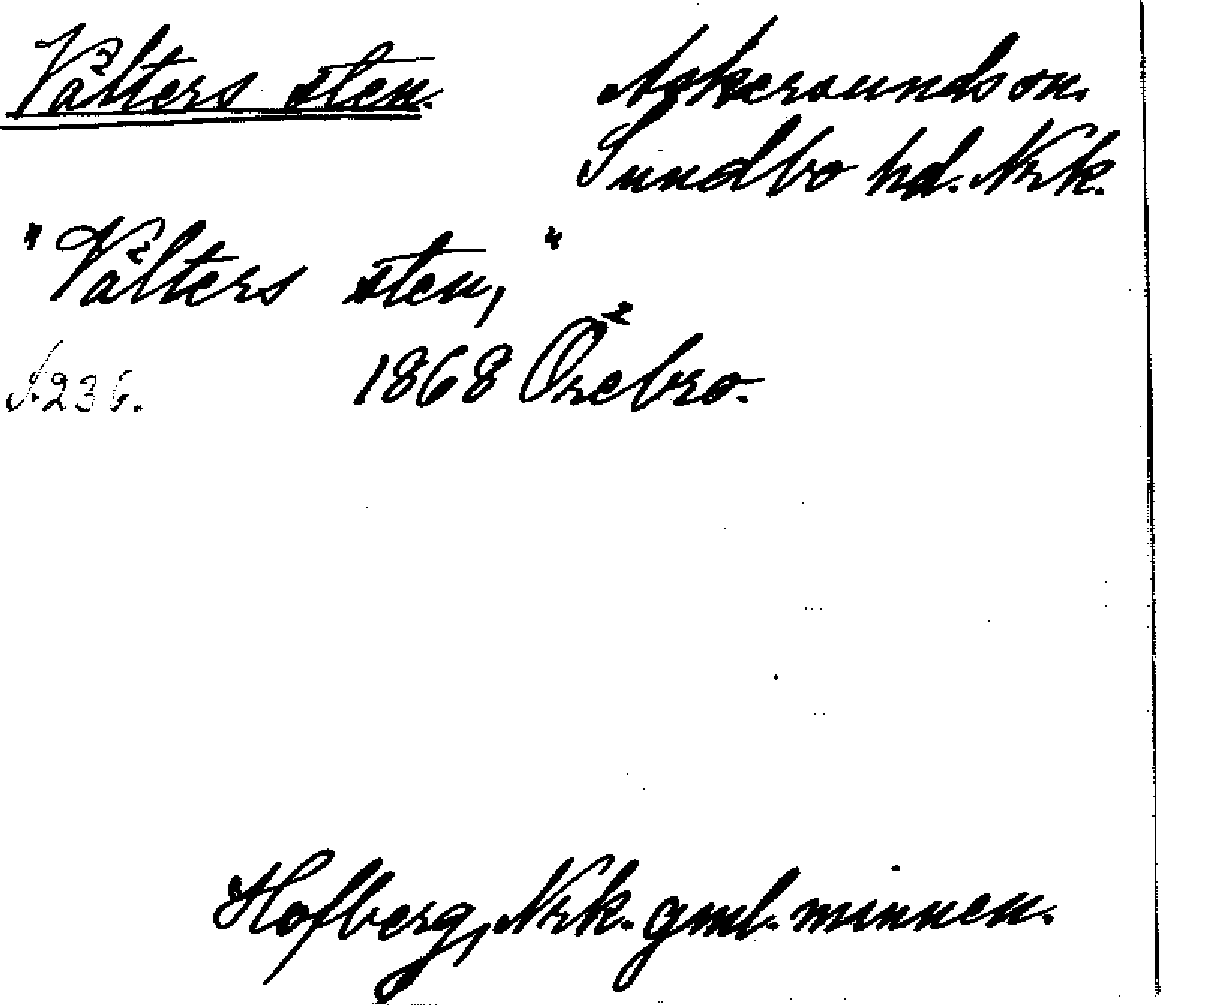 Vålters sten.
Askersunds sn.
Sundbo hd. Nrk.
"Vålters sten,"
1868 Örebro.
s. 236.
Hofberg, Nrk. gml. minnen.